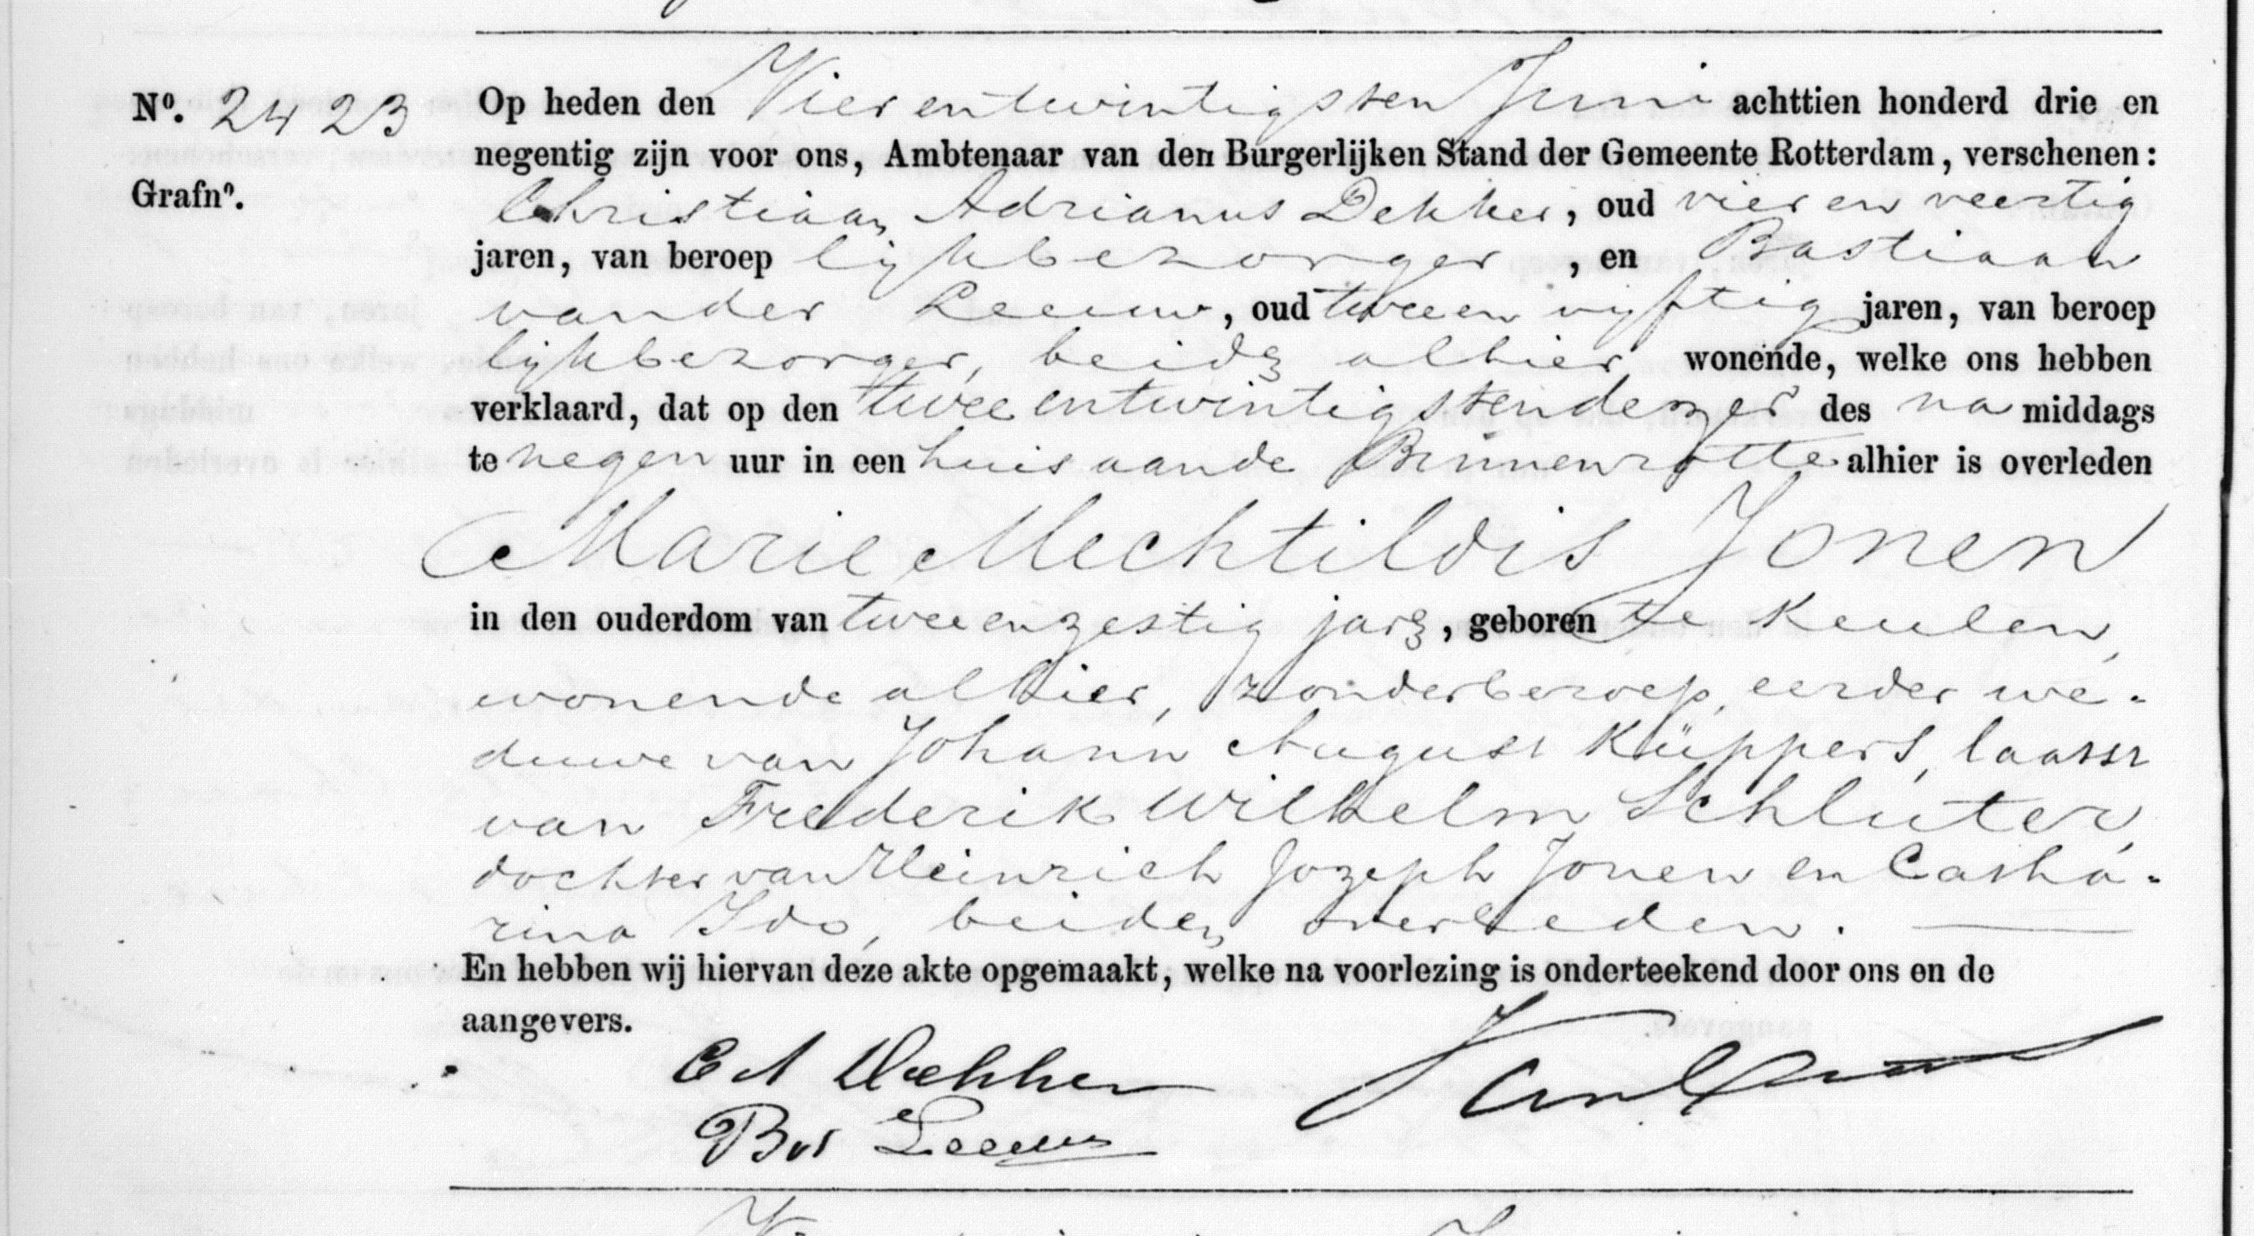 Nº. 2423
Grafnº.
Op heden den Vierentwintigsten Juni achttien honderd drie en
negentig zijn voor ons, Ambtenaar van den Burgerlijken Stand der Gemeente Rotterdam, verschenen:
Christiaan Adrianus Dekker, oud vier en veertig
jaren, van beroep lijkbezorger, en Bastiaan
van der Leeuw, oud twee en vijftig jaren, van beroep
lijkbezorger, beide alhier wonende, welke ons hebben
verklaard, dat op den twee entwintigsten dezer des na middags
te negen uur in een huis aan de Binnenrotte alhier is overleden
Marie Mechtildis Jonen
in den ouderdom van twee en zestig jare, geboren te Keulen,
wonende alhier, zonder beroep, eerder we-
duwe van Johann August Küppers, laatst
van Frederik Wilhelm Schluter,
dochter van Heinrich Jozeph Jonen en Catha-
rina Ido, beiden overleden.
En hebben wij hiervan deze akte opgemaakt, welke na voorlezing is onderteekend door ons en de
aangevers.
C A Dekker
B vd Leeuw